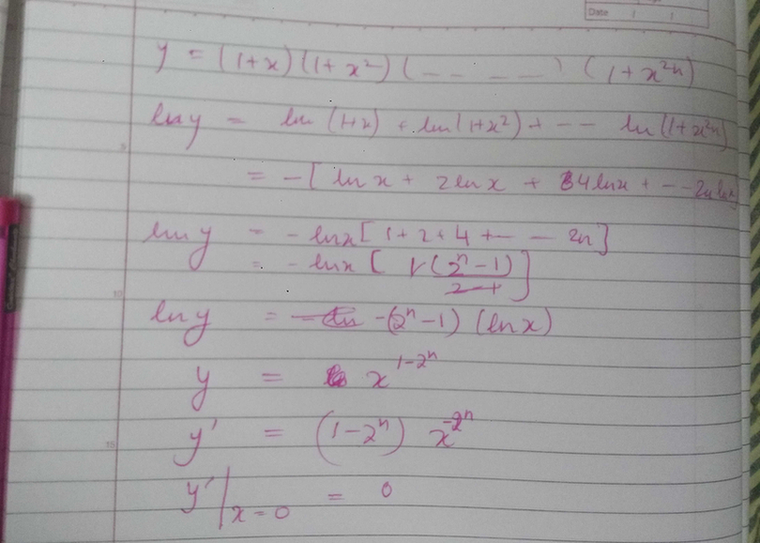 Date
y = (1+x)(1+x²)(– – – –)(1+x²ⁿ)
ln y = ln(1+x) + ln(1+x²) + -- ln(1+x²ⁿ)
= -[ln x + 2ln x + 4ln x + -- 2n ln x]
ln y = -ln x[1+2+4+-- 2n]
= -ln x[1(2ⁿ-1)/2-1]
ln y = -(2ⁿ-1)(ln x)
y = x¹⁻²ⁿ
y' = (1-2ⁿ) x⁻²ⁿ
y'|x=0 = 0